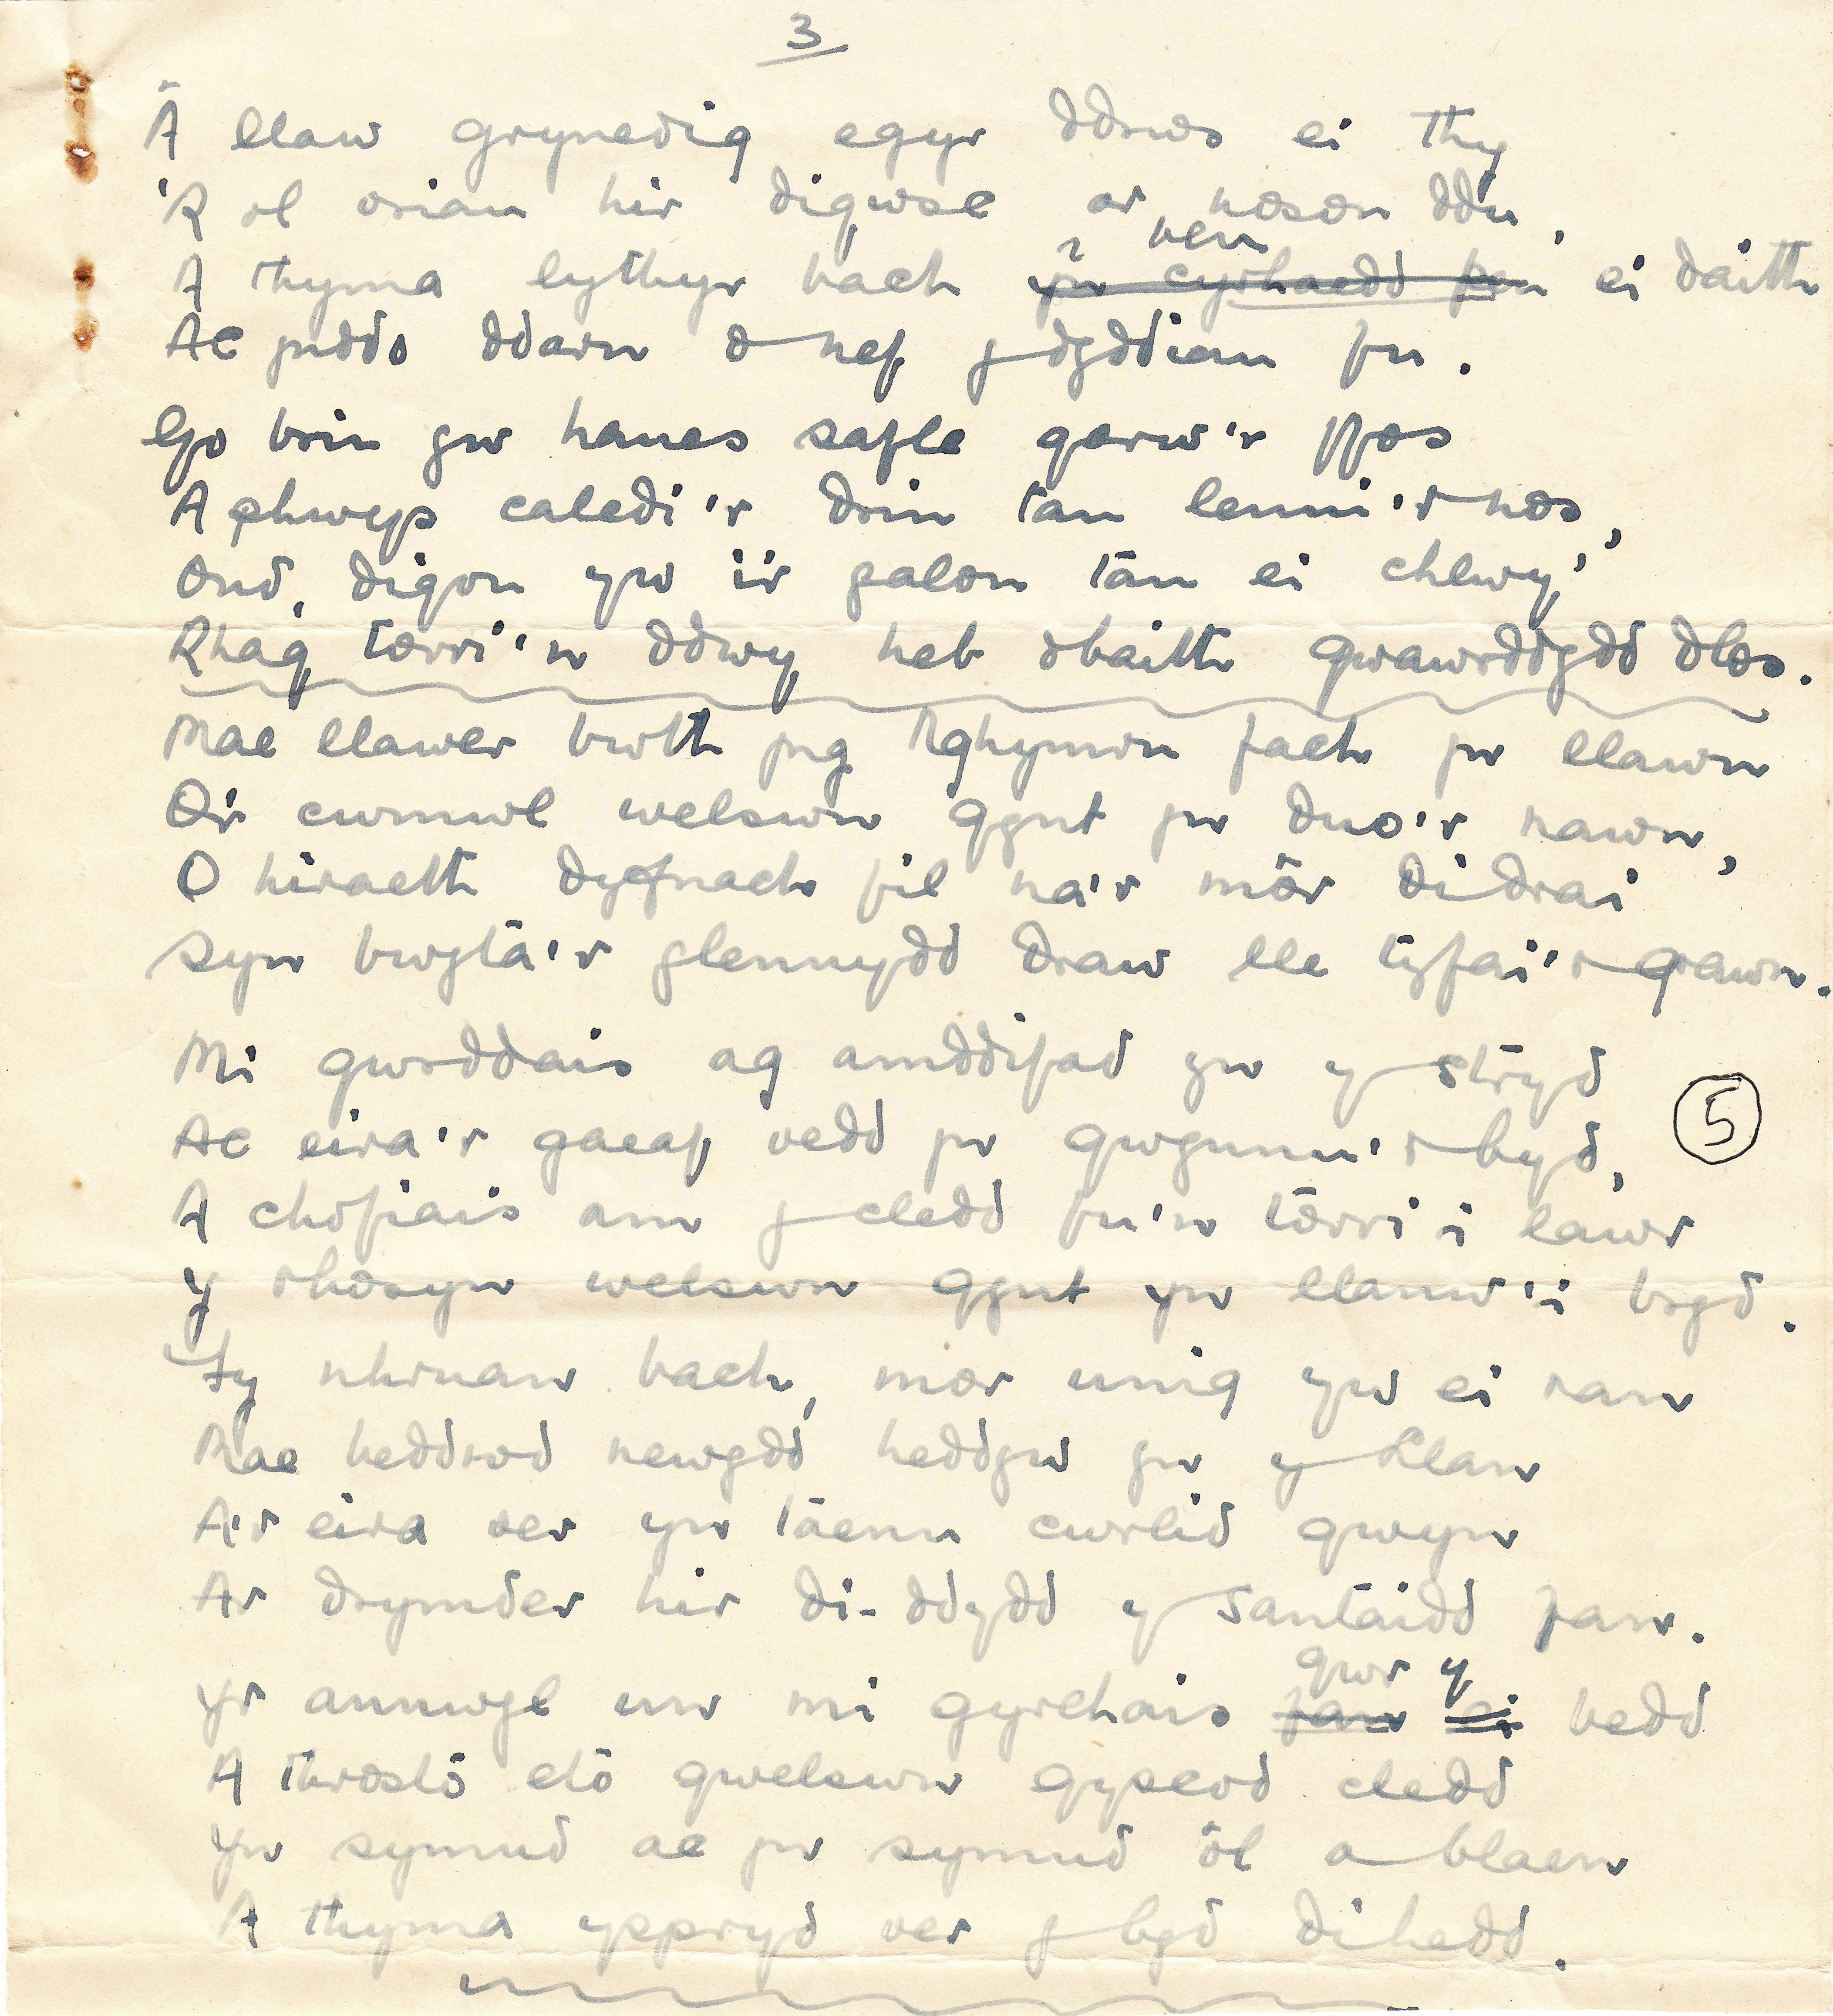 3
Â llaw grynedig egyr ddrws ei thy
'R ol oriau hir digwsc ar noson ddu,
A thyma lythyr bach ~~yn cyrhaedd pen~~ i ben ei daith
Ac ynddo ddarn o nef y dyddiau fu.
Go brin yw hanes safle garw'r ffos
A phwys caledi'r drin tan lenni'r nos,
Ond, digon yw i'r galon tan ei chlwy'
Rhag torri'n ddwy heb obaith gwawrddydd dlos.
Mae llawer bwth yng Nghymru fach yn llawn
O'r cwmwl welswn gynt yn duo'r nawn,
O hiraeth dyfnach fil na'r môr didrai
Syn bwyta'r glennydd draw lle tyfai'r grawn.
Mi gwrddais ag amddifad yn y stryd
Ac eira'r gaeaf oedd yn gwynnu'r byd,
A chofiais am y cledd fu'n torri i lawr
Y rhosyn welswn gynt yn llanw'i bryd.
5
Fy nhruan bach, mor unig yw ei ran
Mae beddrod newydd heddyw yn y Llan
A'r eira oer yn taenu cwrlid gwyn
Ar drymder hir di-ddydd y santaidd fan.
Yr annwyl un mi gyrchais ~~fan ei~~ gwr y bedd
A throsto eto gwelswn gysgod cledd
Yn symud ac yn symud ôl a blaen
A thyma yspryd oer y byd dihedd.